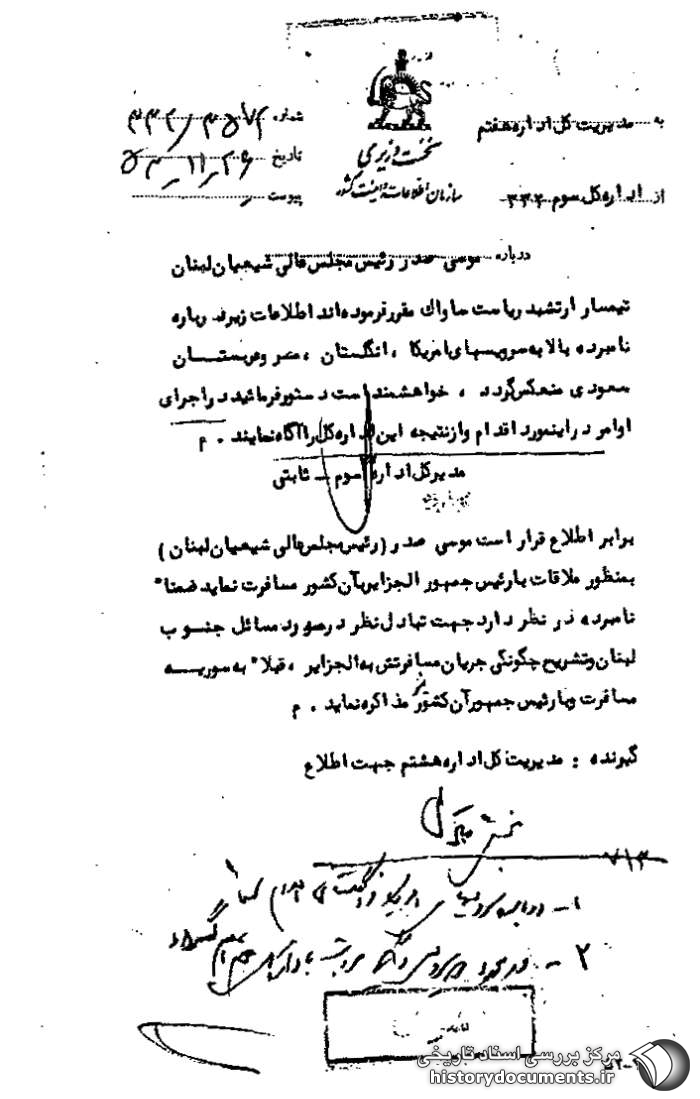 به مدیریت کل اداره هفتم
از اداره کل سوم ۳۳۲
نخست وزیری
سازمان اطلاعات و امنیت کشور
شماره ۳۳۲/۳۵۷۲
تاریخ ۵۳/۱۱/۲۶
پیوست
درباره موسی صدر رئیس مجلس عالی شیعیان لبنان
تیمسار ارتشبد ریاست ساواك مقرر فرموده‌اند اطلاعات زیر درباره
نامبرده بالا به سرویسهای امریکا ، انگلستان ، مصر و عربستان
سعودی منعکس گردد ، خواهشمند است دستور فرمائید در اجرای
اوامر در اینمورد اقدام و از نتیجه این اداره کل را آگاه نمایند . م
مدیر کل اداره سوم - ثابتی
برابر اطلاع قرار است موسی صدر (رئیس مجلس عالی شیعیان لبنان )
بمنظور ملاقات با رئیس جمهور الجزایر بآن کشور مسافرت نماید ضمنا"
نامبرده در نظر دارد جهت تبادل نظر در مورد مسائل جنوب
لبنان و تشریح چگونگی جریان مسافرتش به الجزایر ، قبلا" به سوریه
مسافرت و با رئیس جمهور آن کشور نیز مذاکره نماید . م
گیرنده : مدیریت کل اداره هشتم جهت اطلاع
بخش
۷۱۳
۱-
۲- در مورد
مرکز بررسی اسناد تاریخی
historydocuments.ir